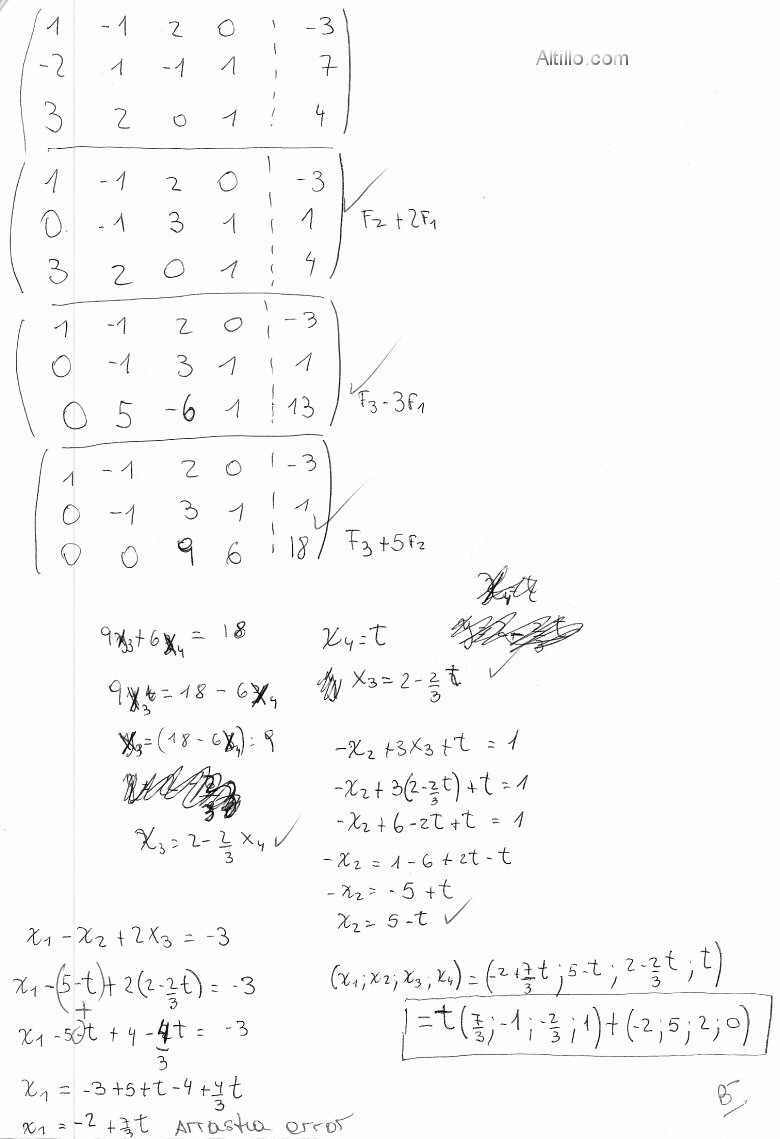 1 -1 2 0 ¦ -3
Altillo.com
-2 1 -1 1 ¦ 7
3 2 0 1 ¦ 4
1 -1 2 0 ¦ -3
0 -1 3 1 ¦ 1 F2 + 2F1
3 2 0 1 ¦ 4
1 -1 2 0 ¦ -3
0 -1 3 1 ¦ 1
0 5 -6 1 ¦ 13 F3 - 3F1
1 -1 2 0 ¦ -3
0 -1 3 1 ¦ 1
0 0 9 6 ¦ 18 F3 + 5F2
9x3 + 6x4 = 18
9x3 = 18 - 6x4
x3 = (18 - 6x4) : 9
x3 = 2 - 2/3 x4 ✓
x4 = t
x3 = 2 - 2/3 t ✓
-x2 + 3x3 + t = 1
-x2 + 3(2 - 2/3 t) + t = 1
-x2 + 6 - 2t + t = 1
-x2 = 1 - 6 + 2t - t
-x2 = -5 + t
x2 = 5 - t ✓
x1 - x2 + 2x3 = -3
x1 - (5 - t) + 2(2 - 2/3 t) = -3
x1 - 5 + t + 4 - 4/3 t = -3
x1 = -3 + 5 + t - 4 + 4/3 t
x1 = -2 + 7/3 t Arrastra error
(x1; x2; x3, x4) = (-2 + 7/3 t ; 5 - t ; 2 - 2/3 t ; t)
= t (7/3 ; -1 ; -2/3 ; 1) + (-2 ; 5 ; 2 ; 0)